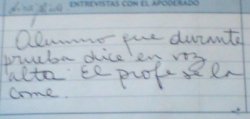 ENTREVISTAS CON EL APODERADO
Alumno que durante
prueba dice en voz
alta. El profe se la
come.